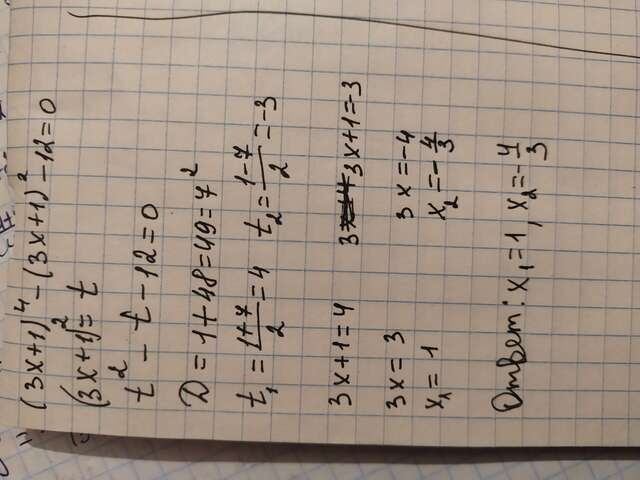 (3x+1)⁴-(3x+1)²-12=0
(3x+1)²=t
t²-t-12=0
D=1+48=49=7²
t₁=(1+7)/2=4 t₂=(1-7)/2=-3
3x+1=4 3x+1=-3
3x=3 3x=-4
x₁=1 x₂=-4/3
Ответ: x₁=1, x₂=-4/3